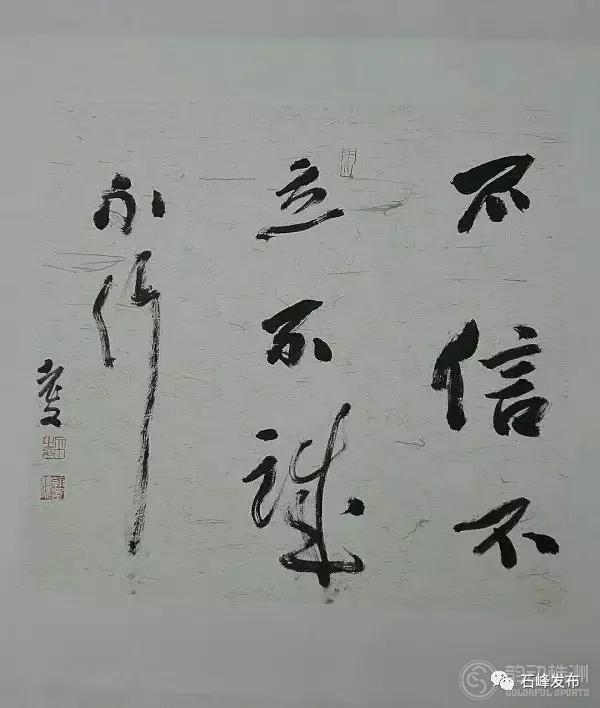 不信不
立不誠
不行
石峰发布
韵动株洲
COLORFUL SPORTS